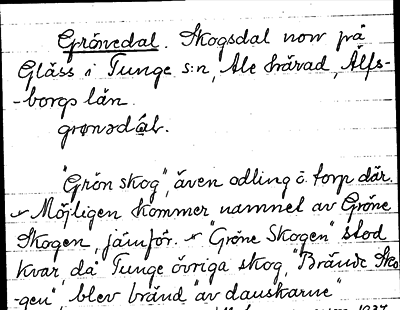 Grönedal. Skogsdal norr på
Gläss i Tunge s:n, Ale härad, Älfs-
-borgs län.
grønədál.
"Grön skog", även odling o. torp där.
Möjligen kommer namnet av Gröne
Skogen, jämför. "Gröne Skogen" stod
kvar, då Tunge övriga skog, "Brände Sko-
-gen", blev bränd "av danskarne"
1937